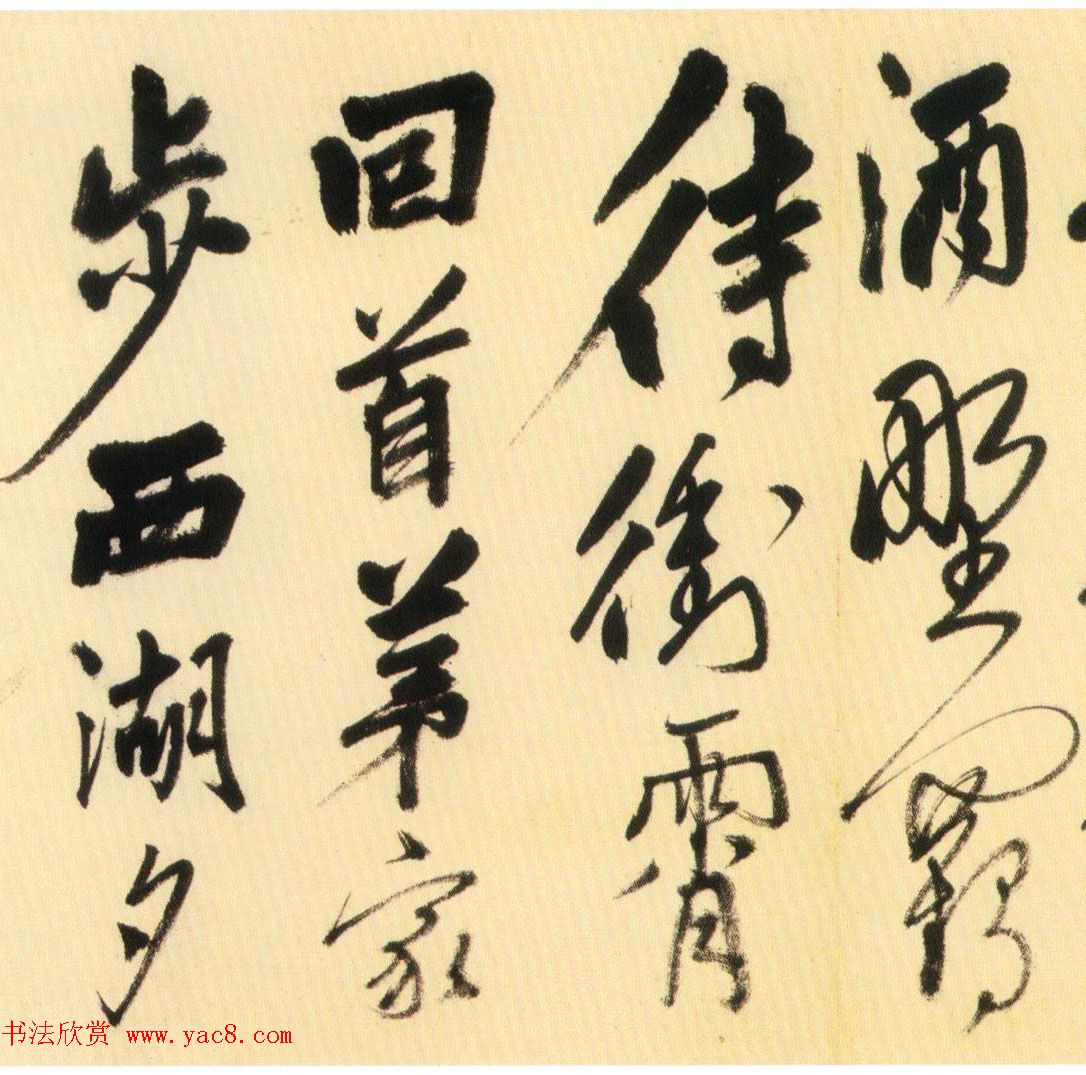 酒
待衝霄
回首茅家
步西湖夕
书法欣赏 www.yac8.com